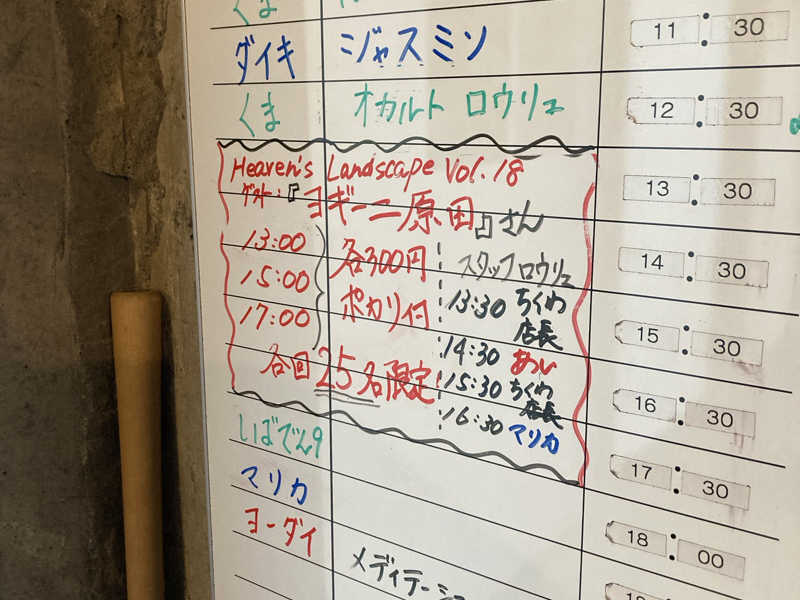 くま
ダイキ ジャスミン 11:30
くま オカルト ロウリュ 12:30
Heaven's Landscape Vol.18 13:30
ゲスト:『ヨギーニ原田』さん
13:00 各300円 スタッフロウリュ 14:30
15:00 ポカリ付 13:30 ちくわ店長 15:30
17:00 14:30 あつい
各回25名限定 15:30 ちくわ店長 16:30
16:30 マリカ
いばでん9 17:30
マリカ 18:00
ヨーダイ